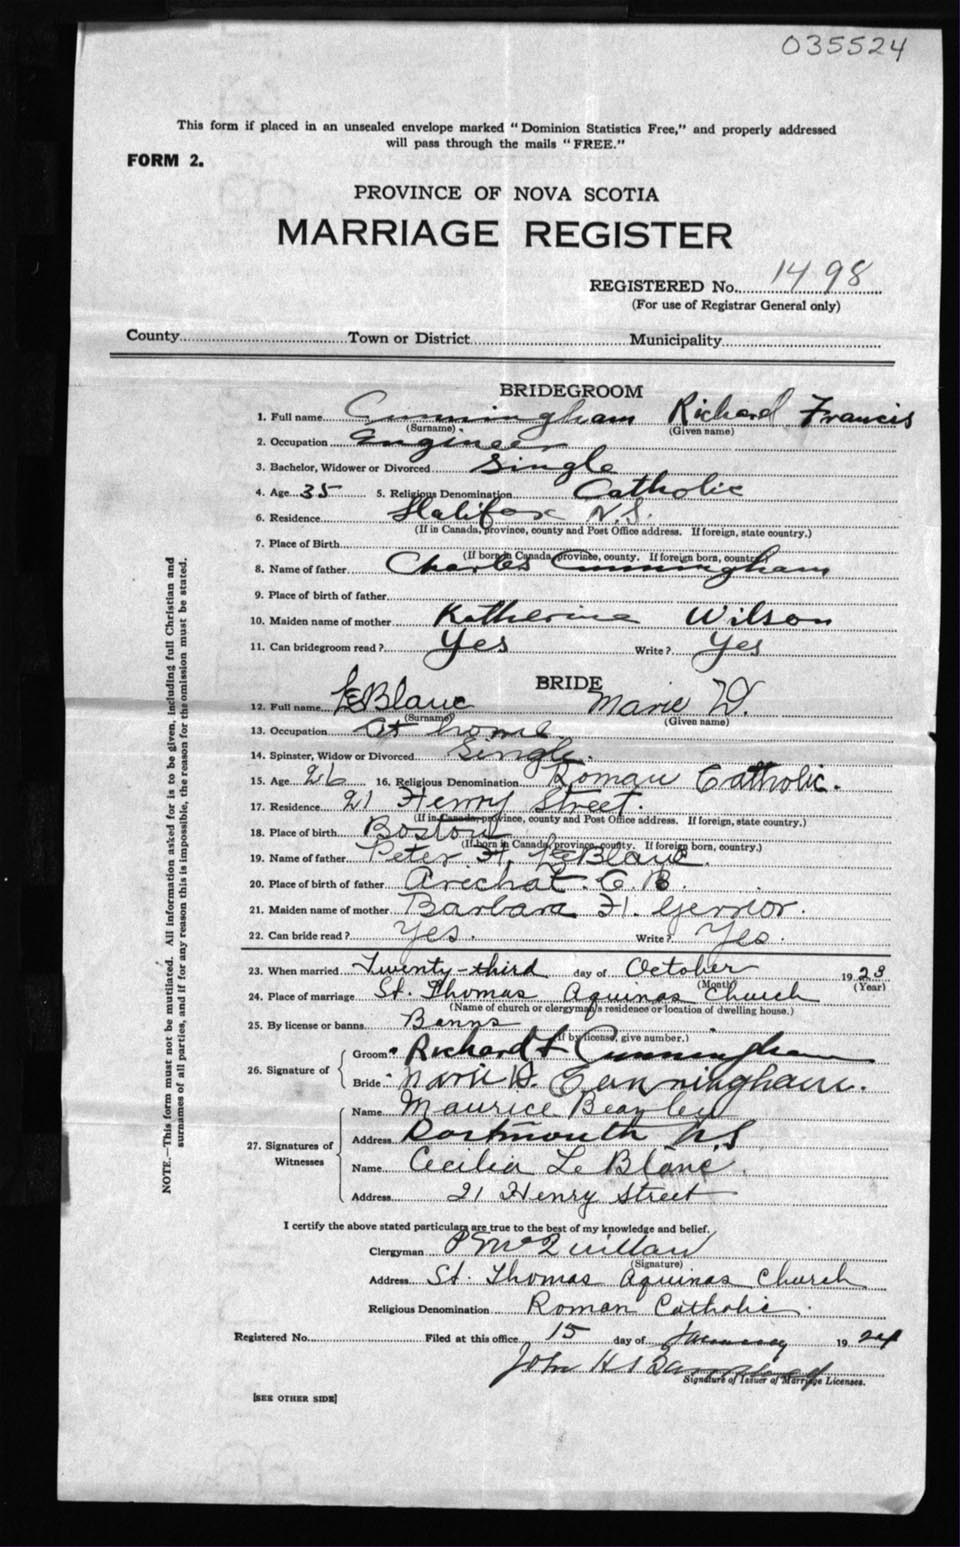 035524
This form if placed in an unsealed envelope marked "Dominion Statistics Free," and properly addressed
will pass through the mails "FREE."
FORM 2.
PROVINCE OF NOVA SCOTIA
MARRIAGE REGISTER
REGISTERED No. 1498
(For use of Registrar General only)
County Town or District Municipality
BRIDEGROOM
1. Full name Cunningham Richard Francis
(Surname) (Given name)
2. Occupation Engineer
3. Bachelor, Widower or Divorced Single
4. Age 35 5. Religious Denomination Catholic
6. Residence Halifax N.S.
(If in Canada, province, county and Post Office address. If foreign, state country.)
7. Place of Birth
(If born in Canada, province, county. If foreign born, country.)
8. Name of father Charles Cunningham
9. Place of birth of father
10. Maiden name of mother Katherine Wilson
11. Can bridegroom read? Yes Write? Yes
BRIDE
12. Full name LeBlanc Marie D.
(Surname) (Given name)
13. Occupation At home
14. Spinster, Widow or Divorced Single.
15. Age 26 16. Religious Denomination Roman Catholic.
17. Residence 21 Henry Street.
(If in Canada, province, county and Post Office address. If foreign, state country.)
18. Place of birth Boston
(If born in Canada, province, county. If foreign born, country.)
19. Name of father Peter H. LeBlanc.
20. Place of birth of father Arichat. C.B.
21. Maiden name of mother Barbara H. Gerrior.
22. Can bride read? Yes. Write? Yes.
23. When married Twenty-third day of October 1923
(Month) (Year)
24. Place of marriage St. Thomas Aquinas Church
(Name of church or clergyman's residence or location of dwelling house.)
25. By license or banns Banns
(If by license, give number.)
26. Signature of
Groom Richard F Cunningham
Bride Marie D. Cunningham.
27. Signatures of Witnesses
Name Maurice Beazley
Address Dartmouth N.S
Name Cecilia Le Blanc.
Address 21 Henry Street
I certify the above stated particulars are true to the best of my knowledge and belief.
Clergyman P McQuillan
(Signature)
Address St. Thomas Aquinas Church
Religious Denomination Roman Catholic.
Registered No. Filed at this office 15 day of January 1924
John H
Signature of Issuer of Marriage Licenses.
[SEE OTHER SIDE]
NOTE.—This form must not be mutilated. All information asked for is to be given, including full Christian and
surnames of all parties, and if for any reason this is impossible, the reason for the omission must be stated.